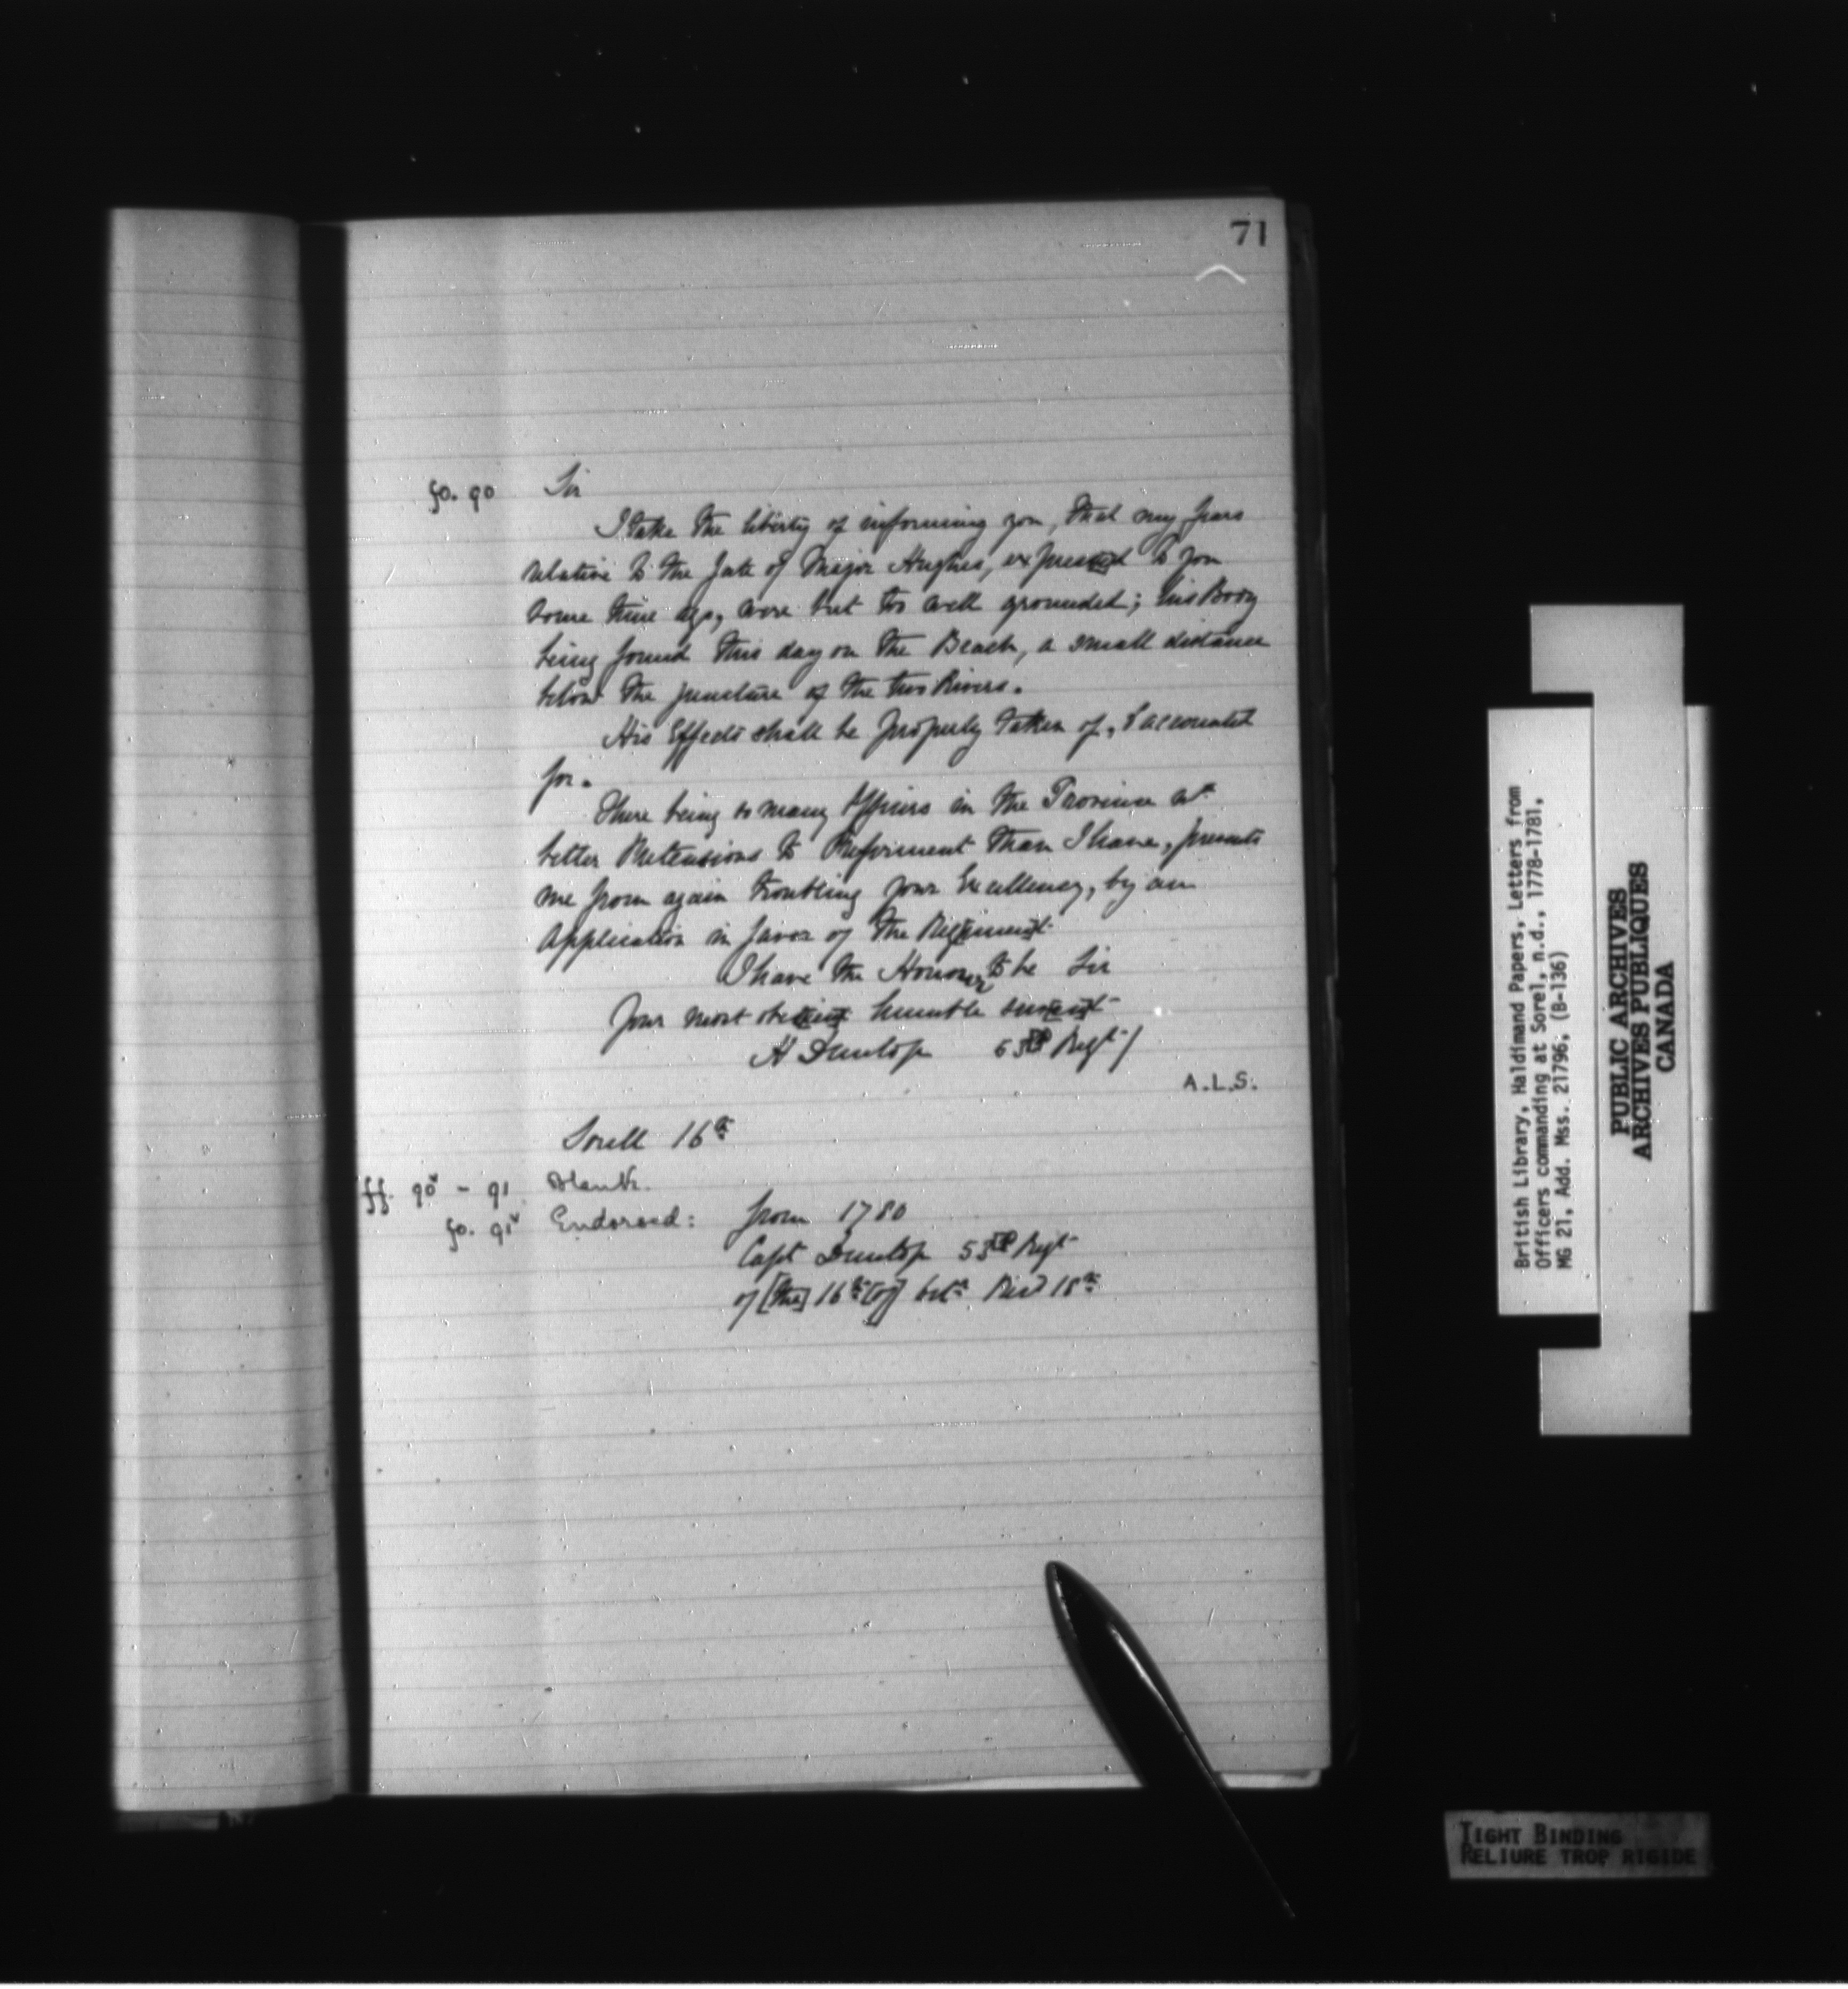 71
fo. 90 Sir
I take the liberty of informing you, that my fears
relative to the fate of Major Hughes, expres[se]d to you
some time ago, were but too well grounded; his Body
being found this day on the Beach, a small distance
below the juncture of the two Rivers.
His Effects shall be properly taken of, & accounted
for.
There being so many Officers in the Province wt
better Pretensions to Preferment than I have, prevents
me from again troubling your Excellency, by an
Application in favor of the Reg[imen]t
I have the Honour to be Sir
Your most obe[dien]t humble ser[van]t
H Dunlop 53[d] Regt /
A.L.S.
Sorell 16th
ff. 90v - 91 Blank.
fo. 91v Endorsed: from 1780
Capt Dunlop 53[d] Regt
of [the] 16th [of] Octr Recd 18th
British Library, Haldimand Papers, Letters from
Officers commanding at Sorel, n.d., 1778-1781,
MG 21, Add. Mss. 21796, (B-136)
PUBLIC ARCHIVES
ARCHIVES PUBLIQUES
CANADA
TIGHT BINDING
RELIURE TROP RIGIDE